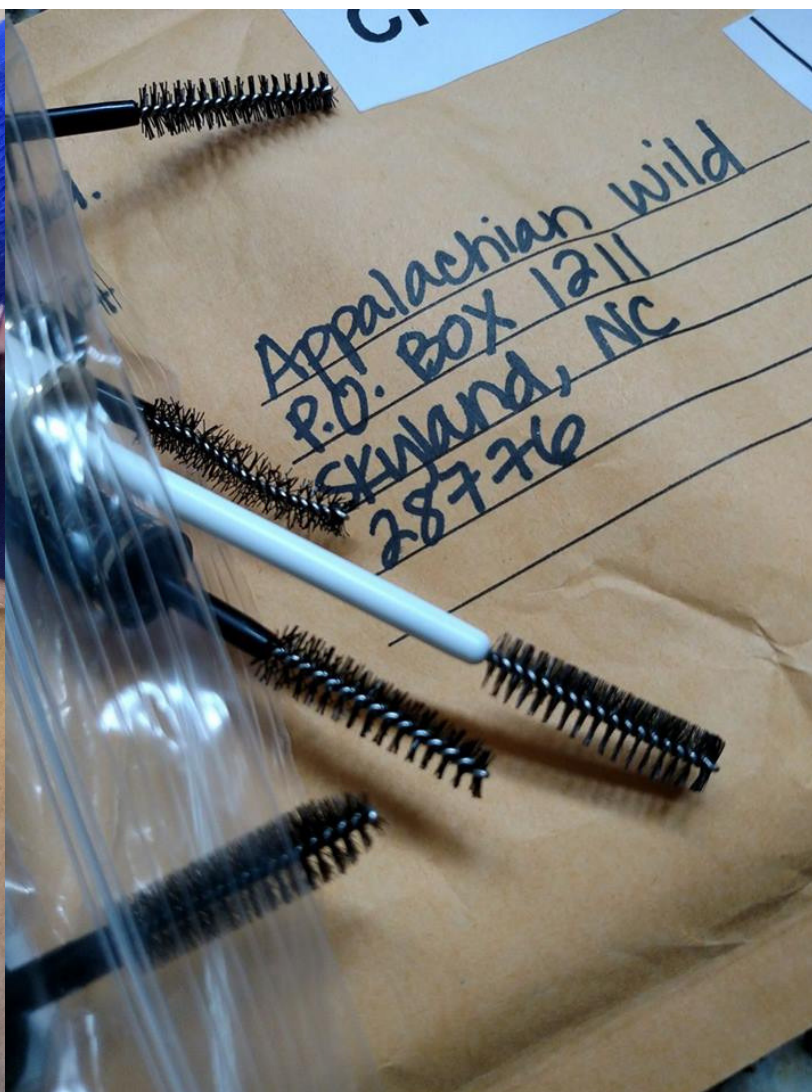 Appalachian Wild
P.O. BOX 1211
Skyland, NC
28776